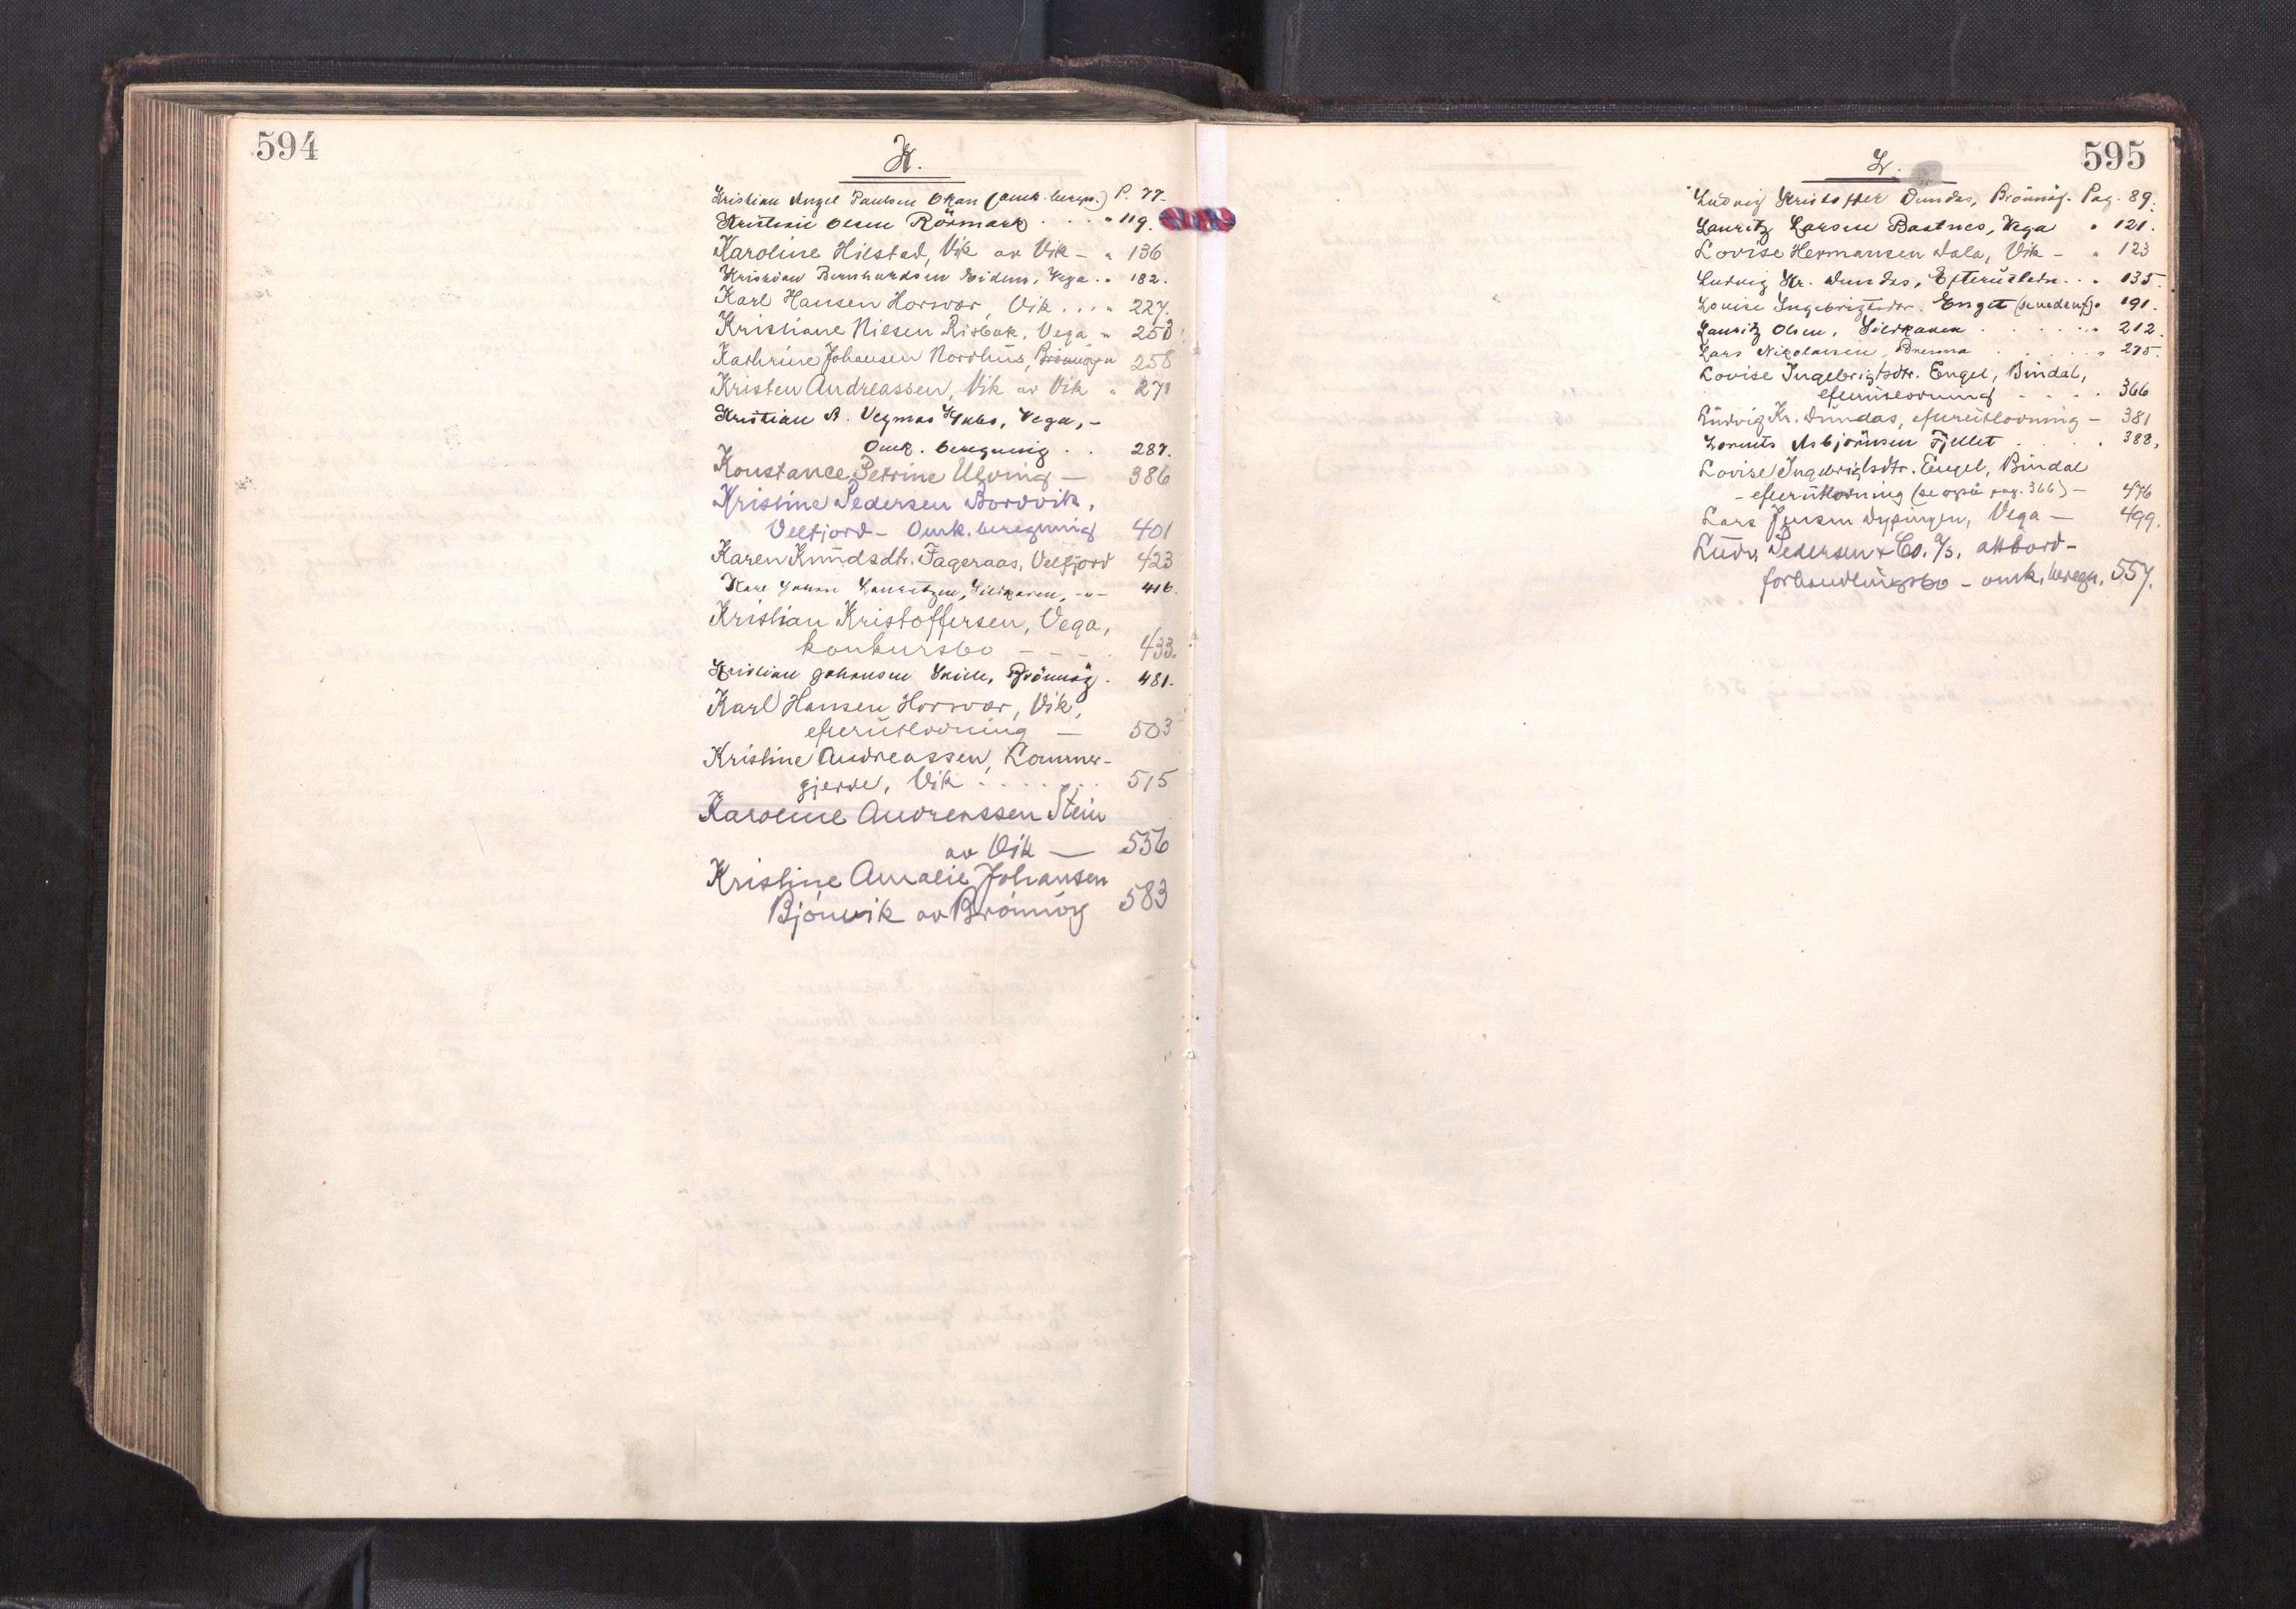 594
K.
Kristian Angel Paulsen Okan (omk. beregn.) P. 77.
Kristine Olsen Rörmark . . . " 119.
Karoline Hilstad, Vik av Vik - " 136
Kristian Bernhardsen Eidem, Vega . " 182.
Karl Hansen Horsvær, Vik . . . " 227.
Kristiane Nilsen Risbak, Vega " 253
Kathrine Johansen Nordhus, Brönnöy 258
Kristen Andreassen, Vik av Vik " 271
Kristian A. Vegmos Yabs, Vega, -
Omk. beregning . . 287.
Konstance Petrine Ulving — 386
Kristine Pedersen Bordvik,
Velfjord - Omk. beregning 401
Karen Knudsdtr. Fageraas, Velfjord 423
Karl Johan Lauritzen, Sildhavn, -"- 416.
Kristian Kristoffersen, Vega,
konkursbo - - - . 433.
Kristian Johansen Skille, Brönnöy . 481.
Karl Hansen Horsvær, Vik,
efterutlodning — 503
Kristine Andreassen, Lommer-
gjerde, Vik . . . . . 515
Karoline Andreassen Stein
av Vik — 556
Kristine Amalie Johansen
Bjönvik av Brönnöy 583
595
L.
Ludvig Kristoffer Dundas, Brönnöy. Pag. 89.
Lauritz Larsen Bastnes, Vega " 121.
Lovise Hermansen Dala, Vik - " 123
Ludvig Kr. Dundas, Efterutlodn. . . 135.
Lovise Ingebrigtsdtr. Enget (se nedenf.) " 191.
Lauritz Olsen, Sildhavn . . . . . " 212.
Lars Nikolaisen, . . . . " 275.
Lovise Ingebrigtsdtr. Enget, Bindal,
efterutlodning - - - . 366
Ludvig Kr. Dundas, efterutlodning - 381
Lornts Asbjörnsen Fjellet . . . . 388,
Lovise Ingebrigtsdtr. Enget, Bindal
- efterutlodning (se også pag. 366) - 476
Lars Jensen Dypingen, Vega — 499.
Ludv. Pedersen & Co. A/S, akkord-
forhandlingsbo - omk. beregn. 557.